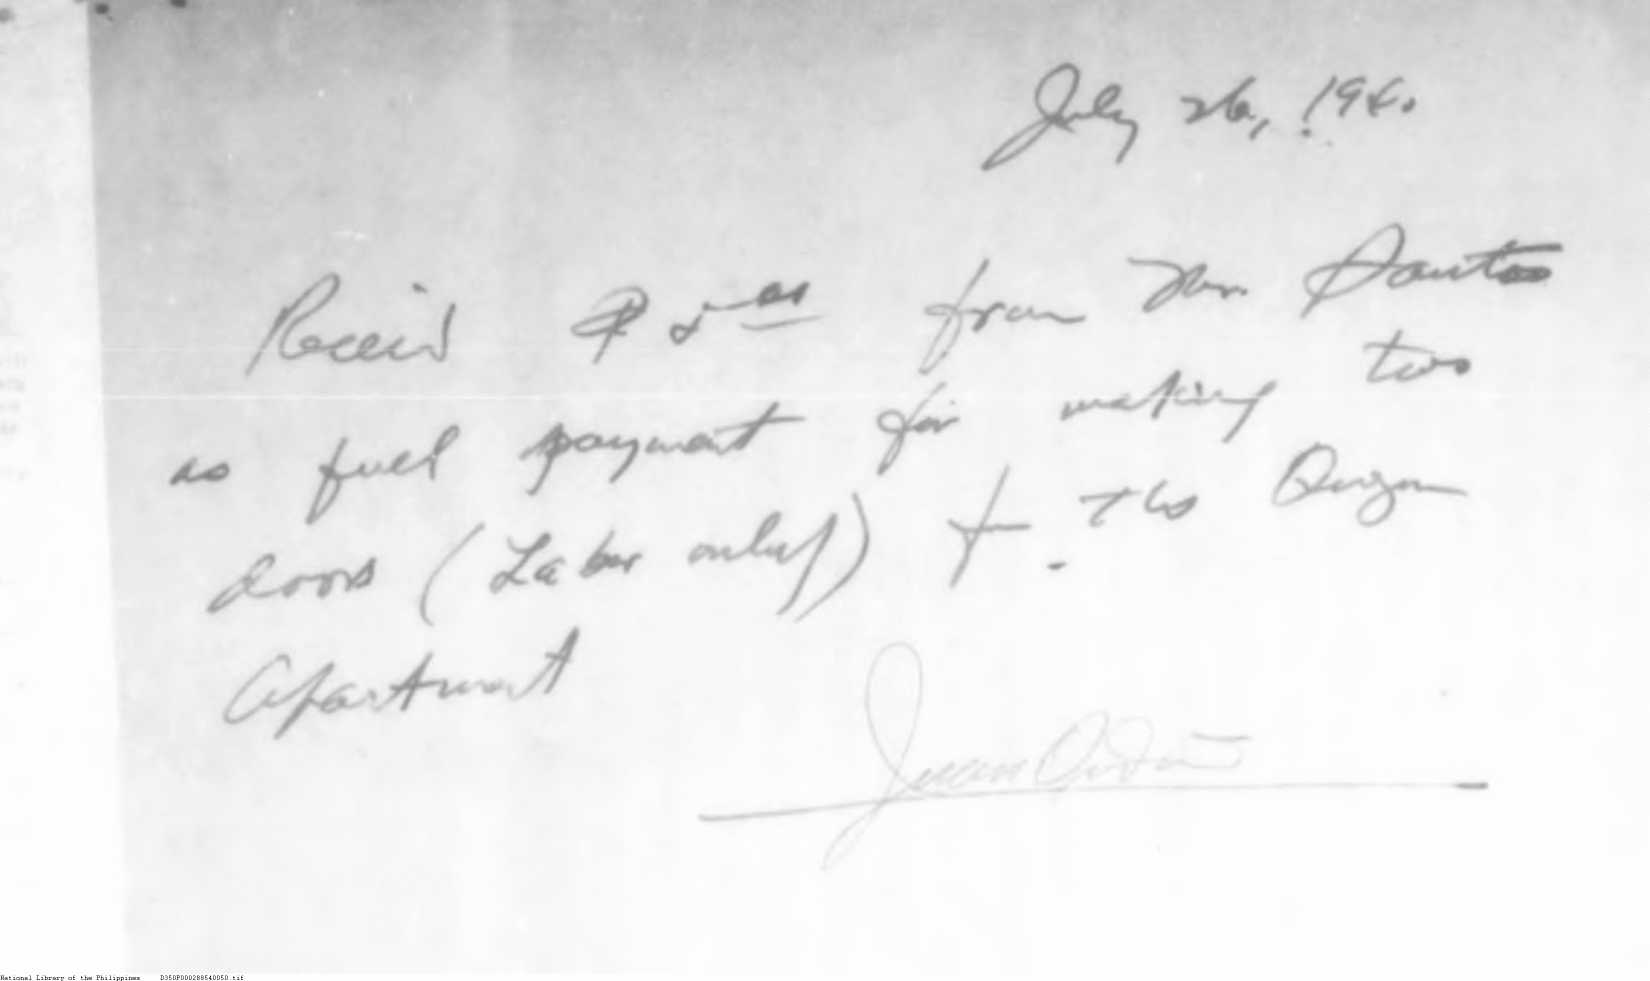 July 26, 1940
Receivd ₱ from Mr. Santos
as full payment for making two
doors (Labor only) for the
apartment
Juan
National Library of the Philippines D350P000288540050.tif